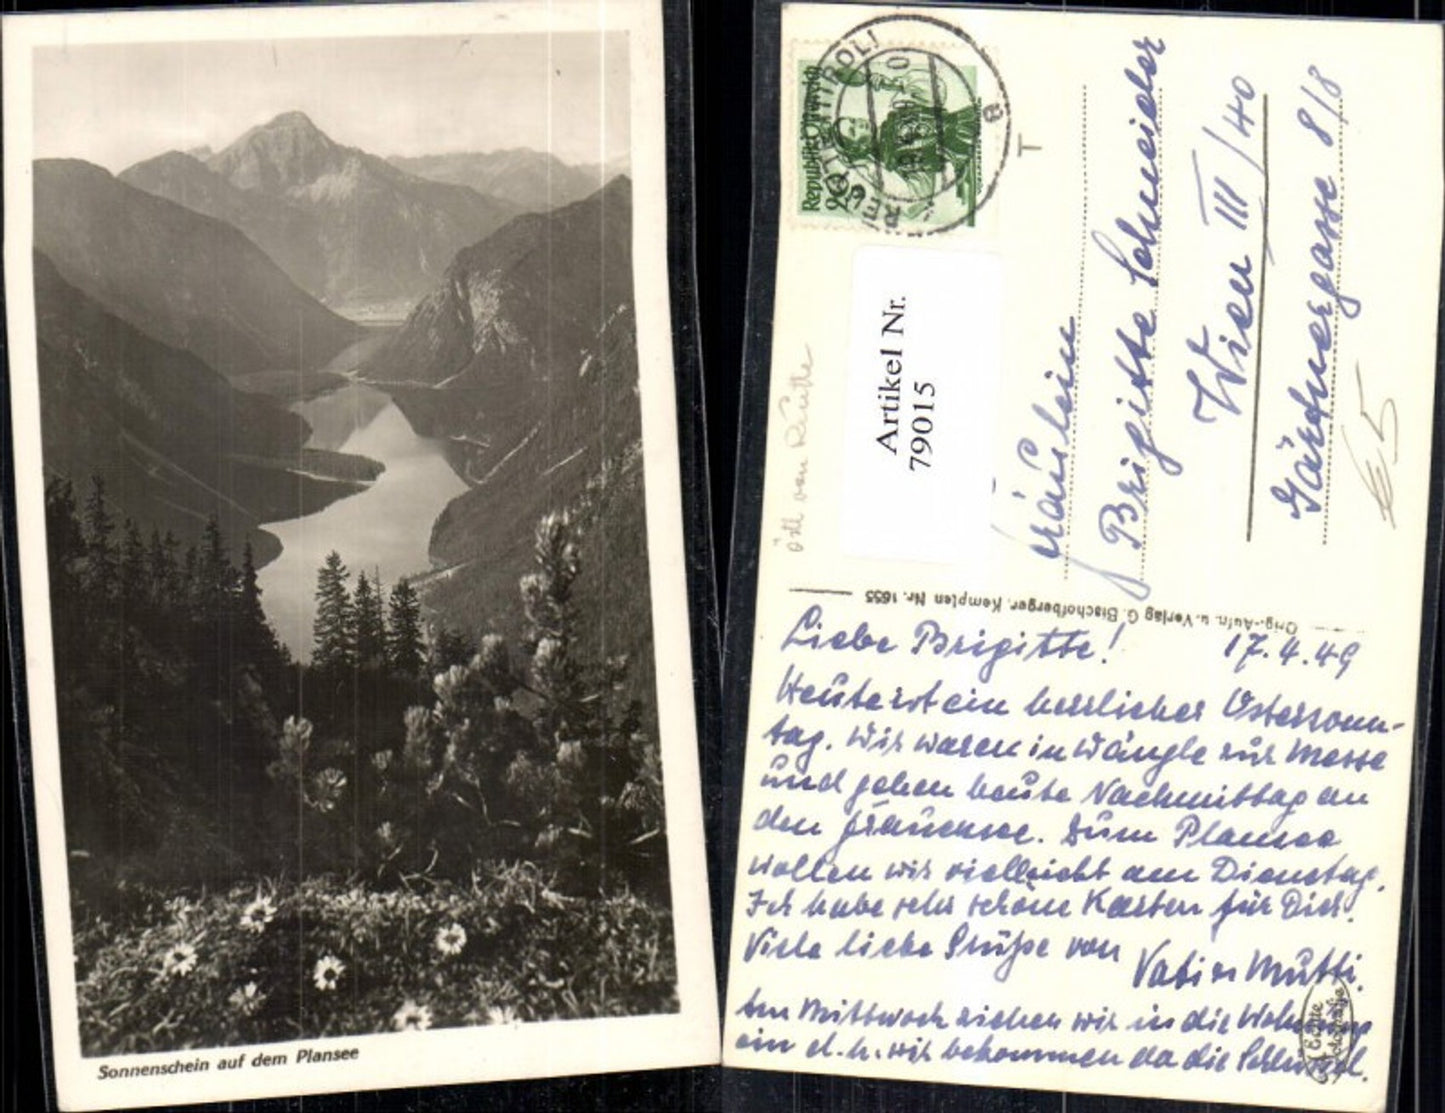 Sonnenschein auf dem Plansee
Republik Österreich
REUTTE (TIROL)
8
T
Artikel Nr.
79015
östl von Reutte
Fräulein
Brigitte Schneider
Wien III/40
Gärtnergasse 8/8
€ 5
Orig.-Aufn. u. Verlag G. Bischofberger, Kempten Nr. 1655
Liebe Brigitte! 17.4.49
Heute ist ein herrlicher Ostersonn-
tag. Wir waren in Wängle zur Messe
und gehen heute Nachmittag an
den Frauensee. Zum Plansee
wollen wir vielleicht am Dienstag.
Ich habe sehr schöne Karten für Dich.
Viele liebe Grüße von Vati u Mutti.
Am Mittwoch ziehen wir in die Wohnung
ein d.h. wir bekommen da die Schlüssel.
Echte